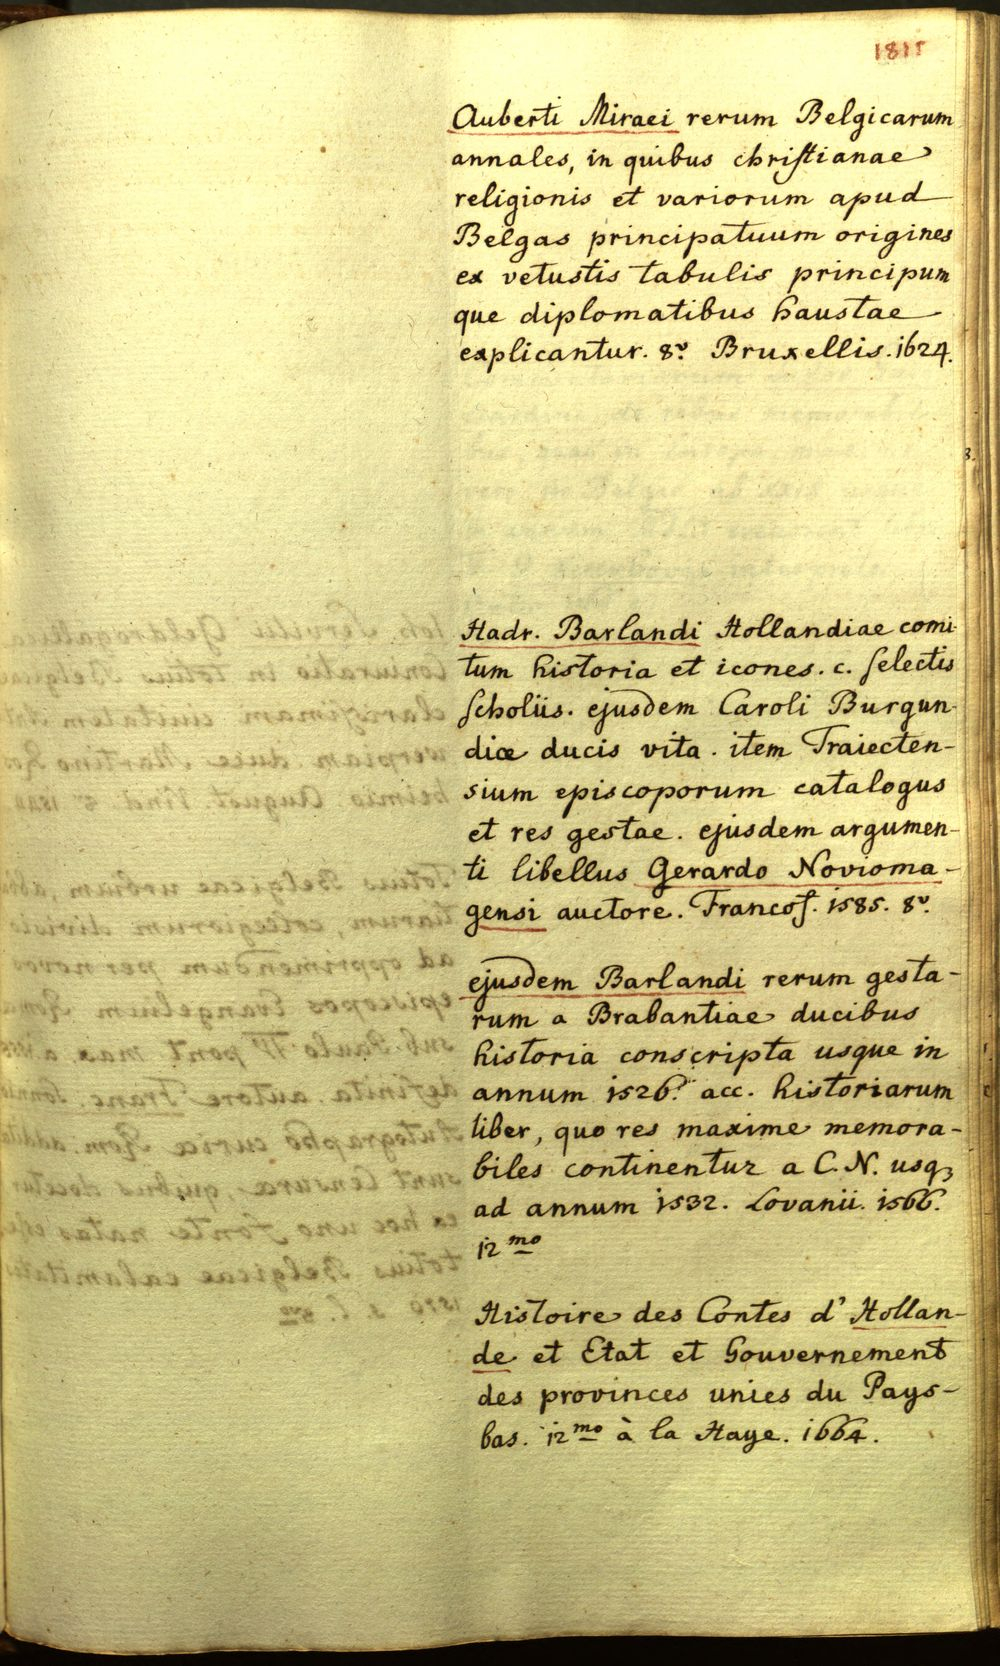 1811
Auberti Miraei rerum Belgicarum
annales, in quibus christianae
religionis et variorum apud
Belgas principatuum origines
ex vetustis tabulis principum
que diplomatibus haustae
explicantur. 8º Bruxellis. 1624.
Hadr. Barlandi Hollandiae comi-
tum historia et icones. c. selectis
scholiis. ejusdem Caroli Burgun-
diæ ducis vita. item Traiecten-
sium episcoporum catalogus
et res gestae. ejusdem argumen-
ti libellus Gerardo Novioma-
gensi auctore. Francof. 1585. 8º.
ejusdem Barlandi rerum gesta-
rum a Brabantiae ducibus
historia conscripta usque in
annum 1526. acc. historiarum
liber, quo res maxime memora-
biles continentur a C. N. usqꝫ
ad annum 1532. Lovanii. 1566.
12mo
Histoire des Contes d' Hollan-
de et Etat et Gouvernement
des provinces unies du Pays-
bas. 12mo à la Haye. 1664.